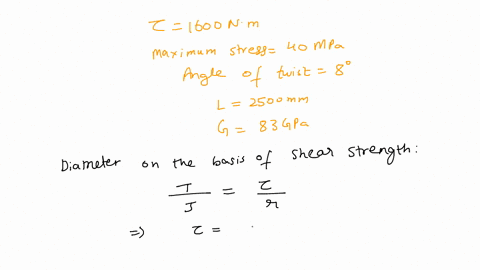 τ = 1600 N·m
maximum stress = 40 MPa
Angle of twist = 8°
L = 2500 mm
G = 83 GPa
Diameter on the basis of shear strength:
T/J = τ/r
⇒ τ =